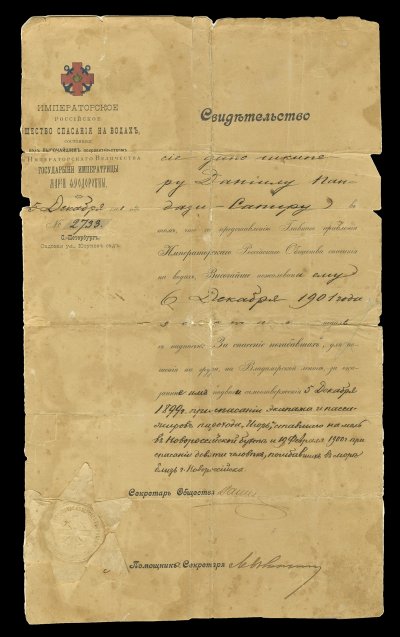 ИМПЕРАТОРСКОЕ
РОССІЙСКОЕ
ЩЕСТВО СПАСАНІЯ НА ВОДАХЪ,
СОСТОЯЩЕЕ
ИМПЕРАТОРСКАГО ВЕЛИЧЕСТВА
ГОСУДАРЫНИ ИМПЕРАТРИЦЫ
МАРІИ ѲЕОДОРОВНЫ,
5 Декабря
№ 2793.
С.-Петербургъ.
Садовая ул., Юсуповъ садъ.
Свидѣтельство
сіе дано шкипе
ру Даніилу Пан
дази-Сатиру въ
томъ, что по представленію Главнаго Правленія
Императорскаго Россійскаго Общества спасанія
на водахъ, Высочайше пожалована ему
6 Декабря 1901 года
золотая медаль
съ надписью „За спасеніе погибавшихъ", для но-
шенія на груди, на Владимірской лентѣ, за ока-
занные имъ подвиги самоотверженія 5 Декабря
1899г. при спасаніи экипажа и пасса-
жировъ парохода „Игорь", ставшаго на мель
въ Новороссійской бухтѣ и 19 Февраля 1900г. при
спасаніи девяти человѣкъ, погибавшихъ въ морѣ
близъ г. Новороссійска
Секретарь Общества
Помощникъ Секретаря